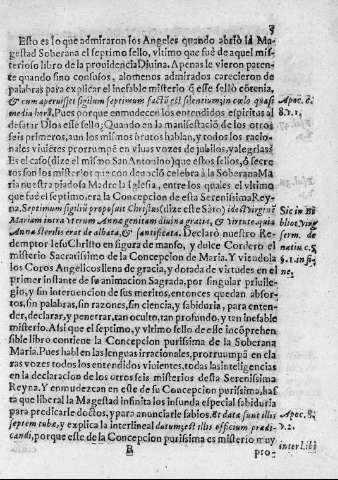 Esto es lo que admiraron los Angeles quando abriò la Ma-
gestad Soberana el septimo sello, vltimo que fuè de aquel mis-
terioso libro de la prouidencia Diuina. Apenas le vieron paten-
te quando sino confusos, alomenos admirados carecieron de
palabras para explicar el inefable misterio q̃ esse sello cōtenia,
& cum aperuisset sigilum septimum factū est silentium, in cœlo quasi
Apoc. 8.
media hora. Pues porque enmudecen los entendidos espiritus al
v. 1.
desatar Dios esse sello; Quando en la manifestaciō de los otros
seis primeros, aun los mismos brutos hablan, y todos los racio-
nales viuiētes prorrumpē en viuas vozes de jubilos, y alegrias?
Es el caso (dize el mismo San Antonino) que estos sellos, ó secre-
tos son los misterios que con deuociō celebra à la Soberana Ma
ria nuestra piadosa Madre la Iglesia, entre los quales el vltimo
que fue el septimo, era la Concepcion de esta Serenissima Rey-
na. Septimum sigilū proposuit Christus (dize este Sāto) idest virginē
Sic in Bi
Mariam intra vterum Annæ gratia diuina gignens, & virtute, quia
bliot. Virg
Anna sterilis erat de albata, & santificata. Declarò nuestro Re-
serm. de
demptor Iesu Christo en figura de manso, y dulce Cordero el
natiu. c. 5
misterio Sacratissimo de la Concepcion de Maria. Y viendola
§. 1. in fi
los Coros Angelicos llena de gracia, y dotada de virtudes en el
ne,
primer instante de su animacion Sagrada, por singular priuile-
gio, y sin interuencion de sus meritos, entonces quedan absor-
tos, sin palabras, sin razones, sin ciencia, y sabiduria, para enten-
der, declarar, y penetrar, tan oculto, tan profundo, y tan inefable
misterio. Asi que el septimo, y vltimo sello de esse incōprehen-
sible libro contiene la Concepcion purissima de la Soberana
Maria. Pues hablen las lenguas irracionales, prorruumpā en cla
ras vozes todos los entendidos viuientes, todas las inteligencias
en la declaracion de los otros seis misterios desta Serenissima
Reyna. Y enmudezcan en este de su Concepcion purissima, has
ta que liberal la Magestad infinita los infunda especial sabiduria
para predicarle doctos, y para anunciarle sabios, & data sunt illis
Apoc. 8.
septem tubæ, y explica la interlineal datum est illis officium prædi-
v. 2.
candi, porque este de la Concepcion purissima es misterio muy
interlibi
B
pro-